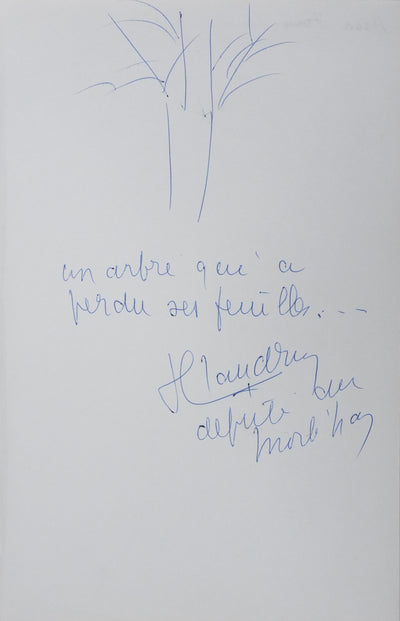 un arbre qui a
perdu ses feuilles. ...
député du
Morbihan